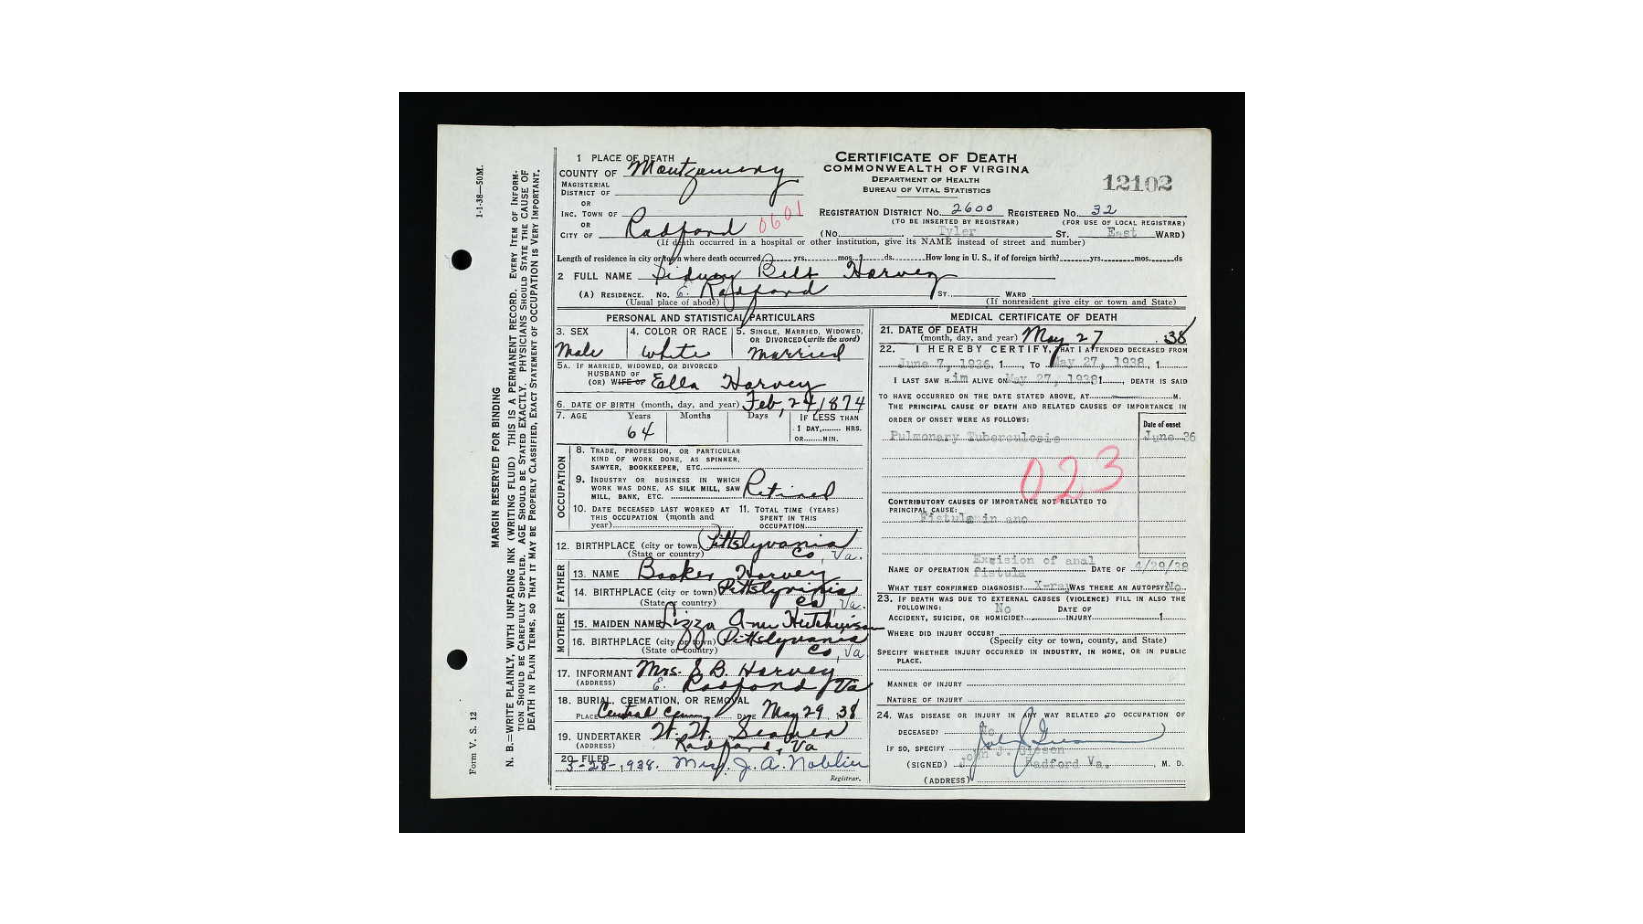 1-1-38—50M.
MARGIN RESERVED FOR BINDING
N. B.—WRITE PLAINLY, WITH UNFADING INK (WRITING FLUID) THIS IS A PERMANENT RECORD. EVERY ITEM OF INFORM-
TION SHOULD BE CAREFULLY SUPPLIED. AGE SHOULD BE STATED EXACTLY. PHYSICIANS SHOULD STATE THE CAUSE OF
DEATH IN PLAIN TERMS, SO THAT IT MAY BE PROPERLY CLASSIFIED. EXACT STATEMENT OF OCCUPATION IS VERY IMPORTANT.
Form V. S. 12
CERTIFICATE OF DEATH
COMMONWEALTH OF VIRGINIA
DEPARTMENT OF HEALTH
BUREAU OF VITAL STATISTICS
12102
1 PLACE OF DEATH
COUNTY OF Montgomery
MAGISTERIAL
DISTRICT OF
OR
INC. TOWN OF
OR
CITY OF Radford 0601
REGISTRATION DISTRICT NO. 2600 REGISTERED NO. 32
(TO BE INSERTED BY REGISTRAR) (FOR USE OF LOCAL REGISTRAR)
(No. Tyler ST. East WARD)
(If death occurred in a hospital or other institution, give its NAME instead of street and number)
Length of residence in city or town where death occurred yrs. mos. ds. How long in U. S., if of foreign birth? yrs. mos. ds
2 FULL NAME Belt Harvey
(A) RESIDENCE. No. E. Radford ST. WARD
(Usual place of abode) (If nonresident give city or town and State)
PERSONAL AND STATISTICAL PARTICULARS
3. SEX Male
4. COLOR OR RACE White
5. SINGLE, MARRIED, WIDOWED, OR DIVORCED (write the word) Married
5A. IF MARRIED, WIDOWED, OR DIVORCED
HUSBAND OF
(OR) WIFE OF Ella Harvey
6. DATE OF BIRTH (month, day, and year) Feb, 24, 1874
7. AGE Years Months Days IF LESS THAN
64 1 DAY, HRS.
OR MIN.
OCCUPATION
8. TRADE, PROFESSION, OR PARTICULAR
KIND OF WORK DONE, AS SPINNER,
SAWYER, BOOKKEEPER, ETC.
9. INDUSTRY OR BUSINESS IN WHICH
WORK WAS DONE, AS SILK MILL, SAW
MILL, BANK, ETC. Retired
10. DATE DECEASED LAST WORKED AT
THIS OCCUPATION (month and
year)
11. TOTAL TIME (YEARS)
SPENT IN THIS
OCCUPATION
12. BIRTHPLACE (city or town) Pittslyvania
(State or country) Co, Va.
FATHER
13. NAME Booker Harvey
14. BIRTHPLACE (city or town)
(State or country) Co Va.
MOTHER
15. MAIDEN NAME Lizza Ann Hutchinson
16. BIRTHPLACE (city or town) Pittslyvania
(State or country) Co, Va
17. INFORMANT Mrs. S. B. Harvey
(ADDRESS) E. Radford Va
18. BURIAL, CREMATION, OR REMOVAL
PLACE Central Cem DATE May 29, 38
19. UNDERTAKER
(ADDRESS) Radford, Va
20. FILED 5-28-, 938. Mrs. J. A. Noblin
Registrar.
MEDICAL CERTIFICATE OF DEATH
21. DATE OF DEATH
(month, day, and year) May 27, 38
22. I HEREBY CERTIFY, THAT I ATTENDED DECEASED FROM
June 7, 1936. 1 , TO May 27, 1938, 1
I LAST SAW H im ALIVE ON May 27, 1938 1 , DEATH IS SAID
TO HAVE OCCURRED ON THE DATE STATED ABOVE, AT M.
THE PRINCIPAL CAUSE OF DEATH AND RELATED CAUSES OF IMPORTANCE IN
ORDER OF ONSET WERE AS FOLLOWS:
Date of onset
Pulmonary Tuberculosis June 36
023
CONTRIBUTORY CAUSES OF IMPORTANCE NOT RELATED TO
PRINCIPAL CAUSE:
Fistula in ano
Excision of anal
NAME OF OPERATION fistula DATE OF 4/29/38
WHAT TEST CONFIRMED DIAGNOSIS? X-ray WAS THERE AN AUTOPSY? No.
23. IF DEATH WAS DUE TO EXTERNAL CAUSES (VIOLENCE) FILL IN ALSO THE
FOLLOWING: No DATE OF
ACCIDENT, SUICIDE, OR HOMICIDE? INJURY 1
WHERE DID INJURY OCCUR?
(Specify city or town, county, and State)
SPECIFY WHETHER INJURY OCCURRED IN INDUSTRY, IN HOME, OR IN PUBLIC
PLACE.
MANNER OF INJURY
NATURE OF INJURY
24. WAS DISEASE OR INJURY IN ANY WAY RELATED TO OCCUPATION OF
DECEASED? No
IF SO, SPECIFY
(SIGNED) John J. , M. D.
(ADDRESS) Radford Va.